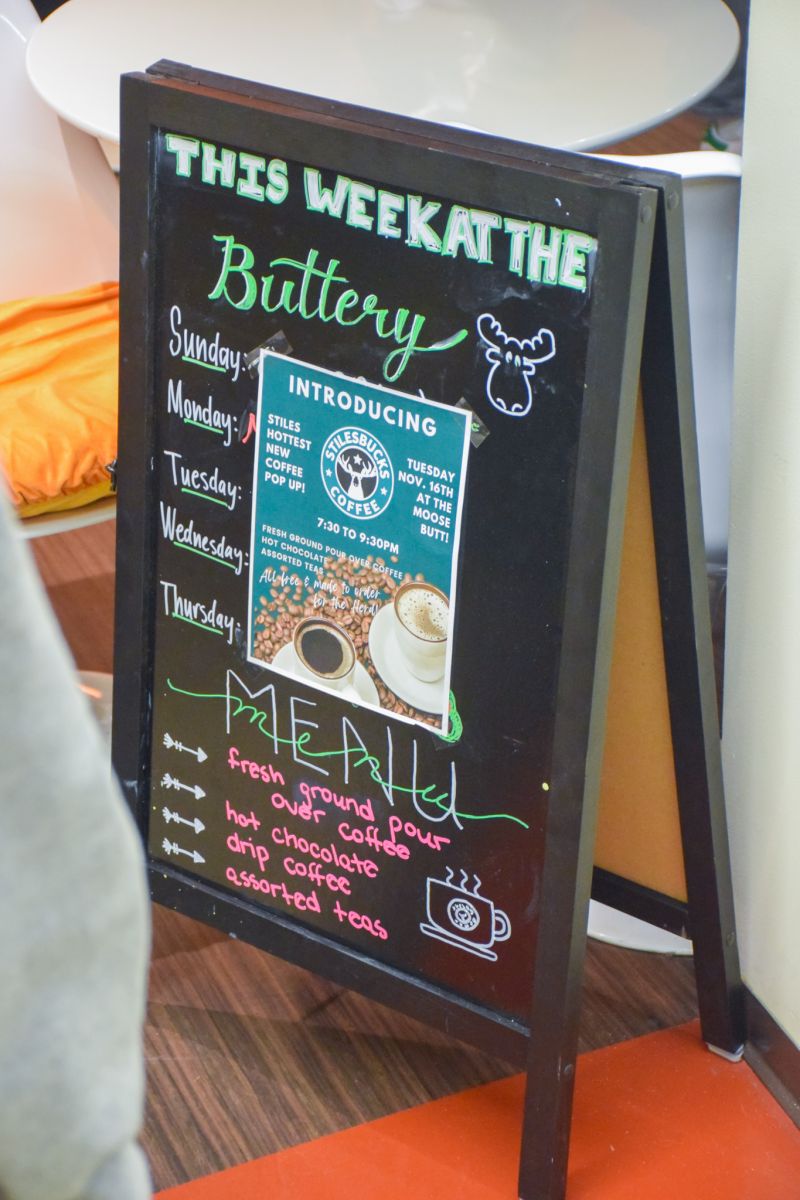 THIS WEEK AT THE
Buttery
Sunday:
Monday:
Tuesday:
Wednesday:
Thursday:
INTRODUCING
STILES
HOTTEST
NEW
COFFEE
POP UP!
STILESBUCKS
COFFEE
TUESDAY
NOV. 16TH
AT THE
MOOSE
BUTT!
7:30 TO 9:30PM
FRESH GROUND POUR OVER COFFEE
HOT CHOCOLATE
ASSORTED TEAS
All free & made to order
for the Herd!
MENU
menu
fresh ground pour
over coffee
hot chocolate
drip coffee
assorted teas